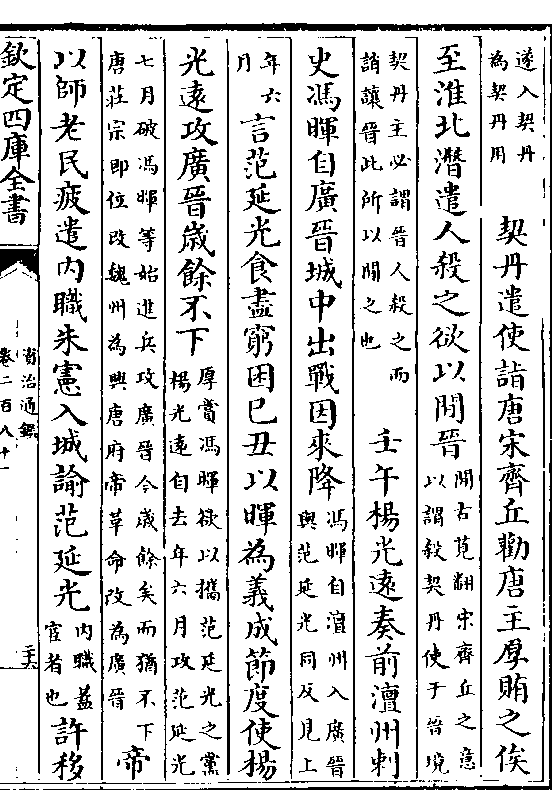 遂入契丹為契丹用 契丹遣使詣唐宋齊丘勸唐主厚賄之俟
至淮北潛遣人殺之欲以間晉間古莧翻宋齊丘之意以謂殺契丹使于晉境
契丹主必謂晉人殺之而誚讓晉此所以間之也 壬午楊光遠奏前澶州刺
史馮暉自廣晉城中出戰因來降馮暉自澶州入廣晉與范延光同反見上
年六月言范延光食盡窮困己丑以暉為義成節度使楊
光遠攻廣晉歲餘不下厚賞馮暉欲以攜范延光之黨楊光遠自去年六月攻范延光
七月破馮暉等始進兵攻廣晉今歲餘矣而猶不下唐莊宗即位改魏州為興唐府帝革命改為廣晉帝
以師老民疲遣內職朱憲入城諭范延光內職蓋宦者也許移
欽定四庫全書
資治通鑑
卷二百八十一